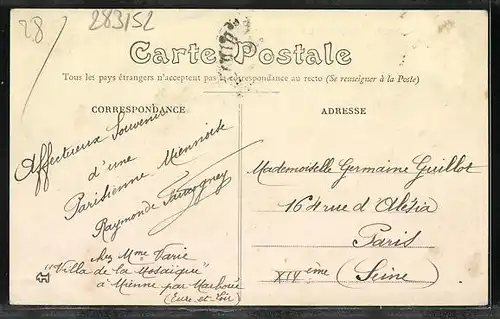 28
283/52
Carte Postale
Tous les pays étrangers n'acceptent pas la correspondance au recto (Se renseigner à la Poste)
CORRESPONDANCE
Affectueux Souvenir
d'une
Parisienne Miennoise
Raymonde
chez Mme Varié
"Villa de la Mosaïque"
à Mienne par Marboué
(Eure-et-Loir)
ADRESSE
Mademoiselle Germaine Guillot
164 rue d'Alésia
Paris
XIVème (Seine)